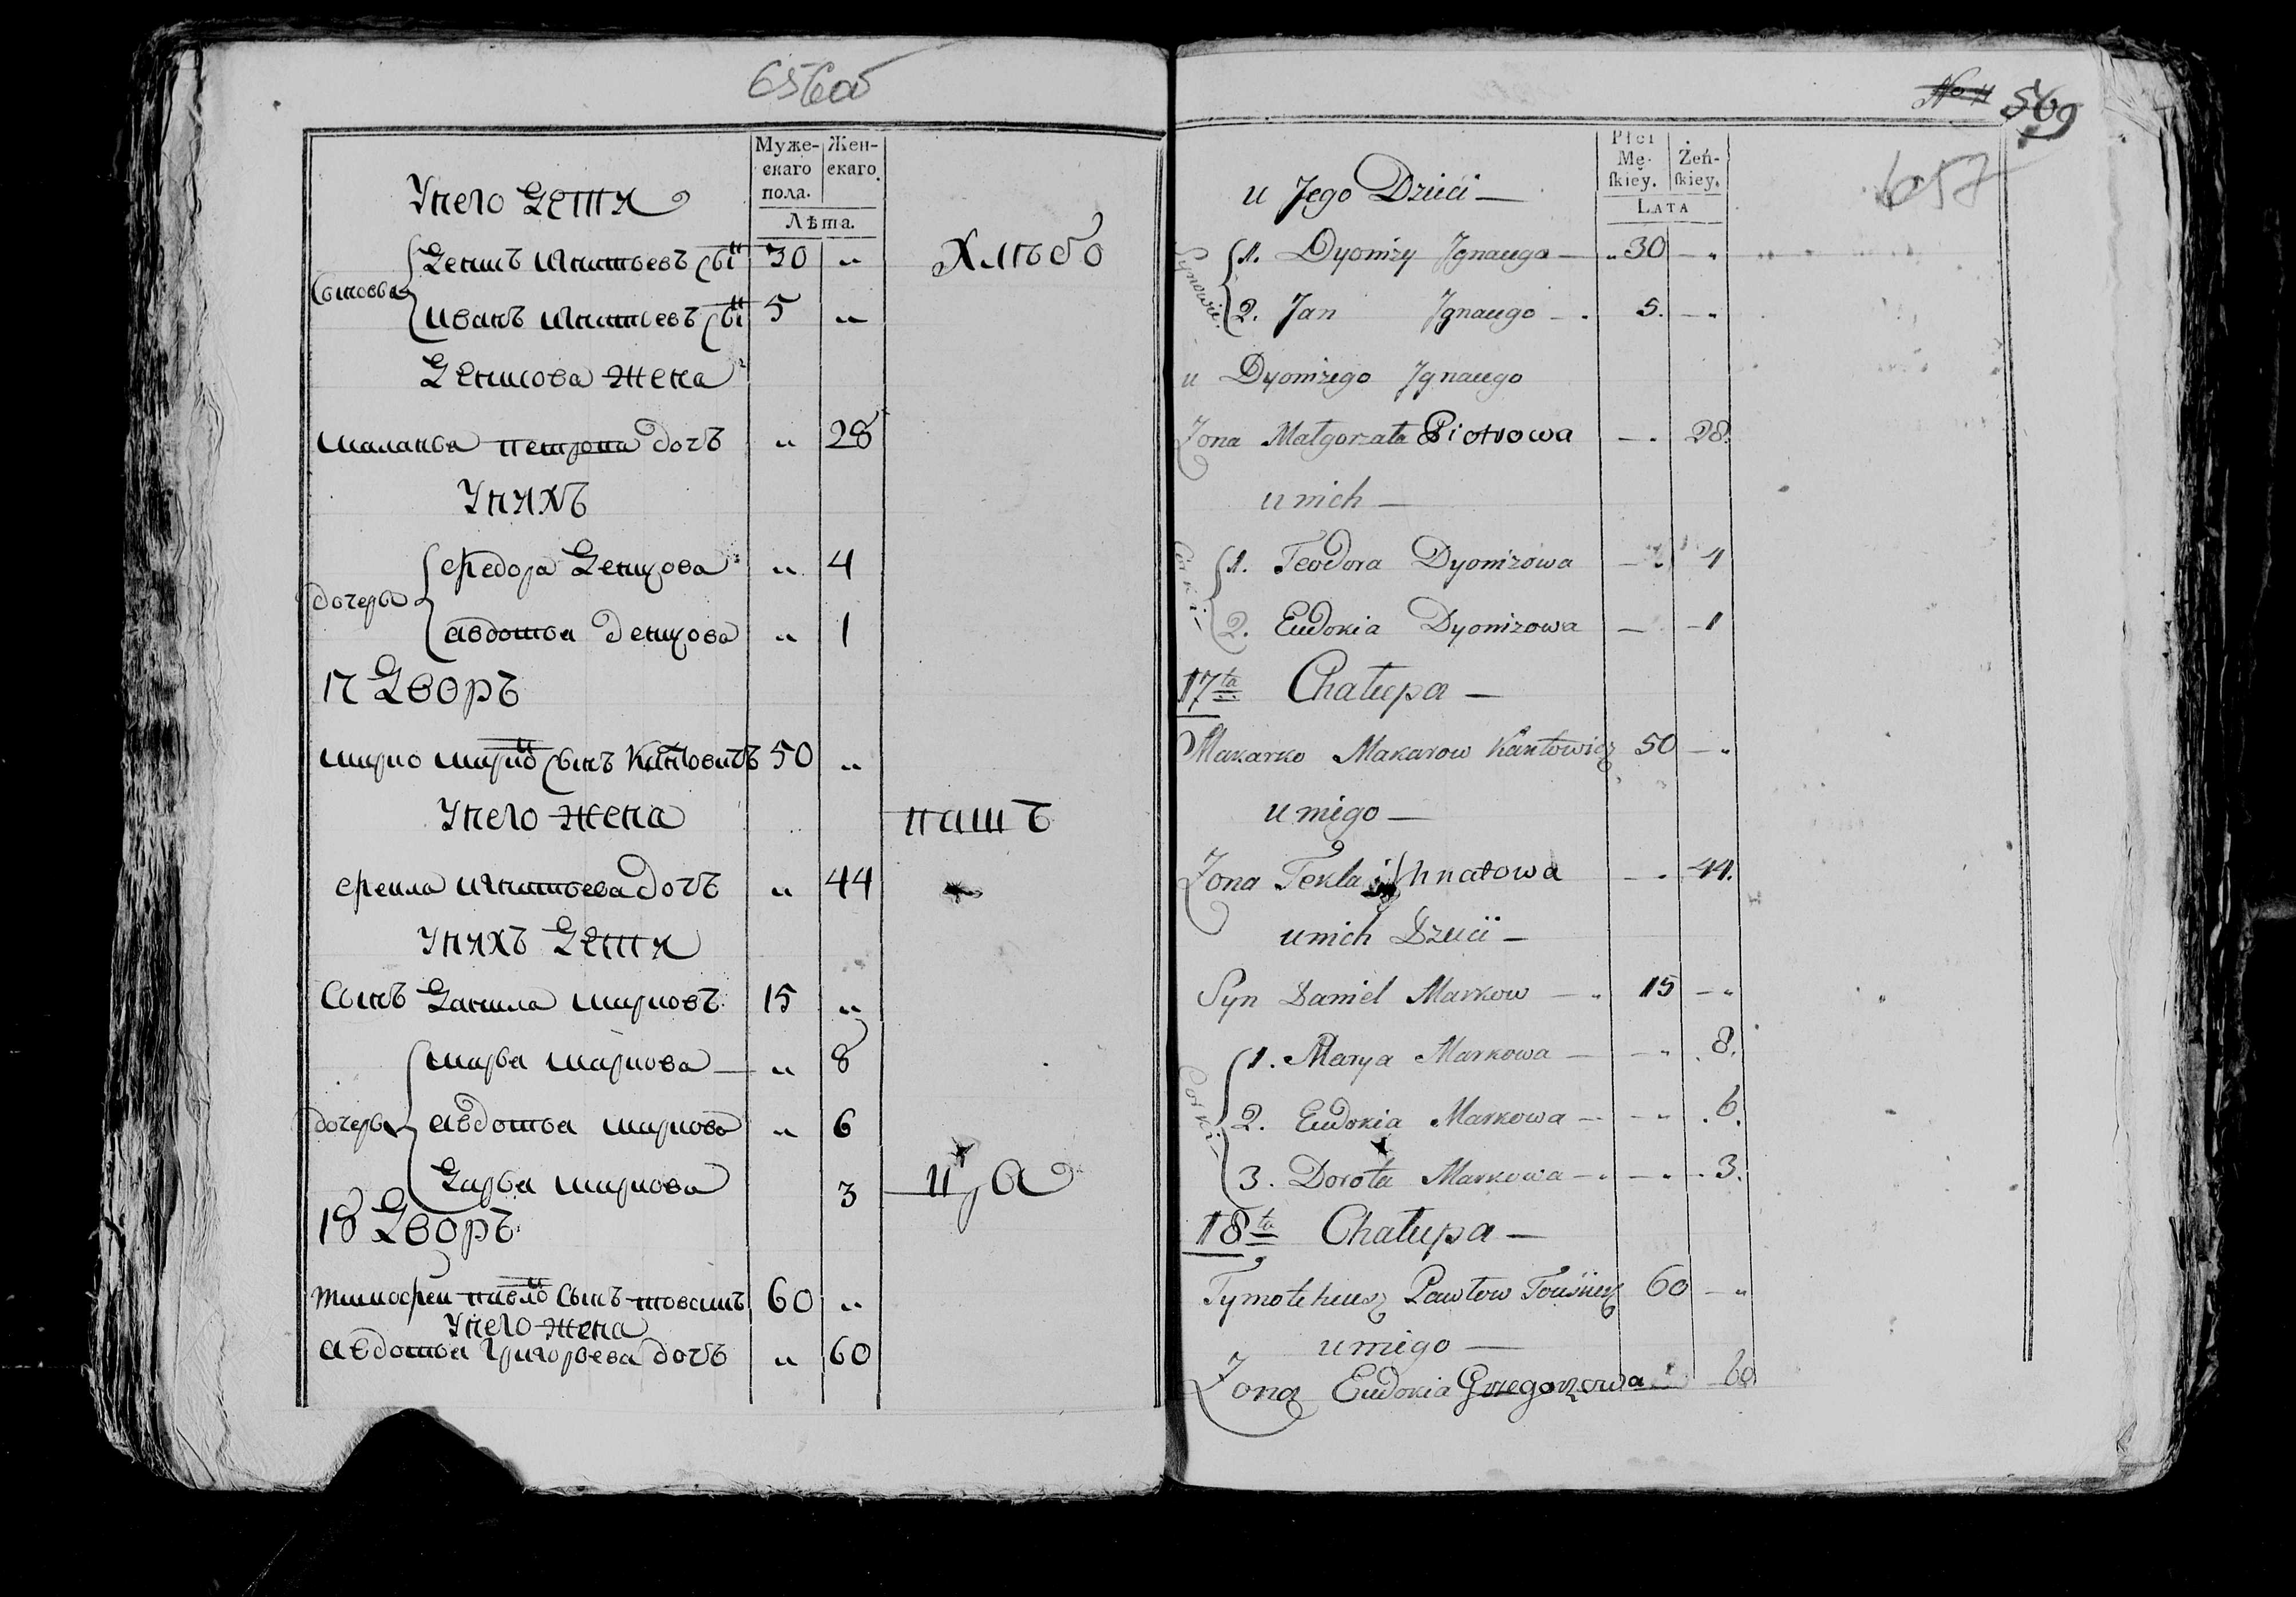 656об
Муже-
скаго
пола.
Жен-
скаго
Лѣта.
Унего Дети
Сыновья
Денисъ Игнатьевъ сынъ 30 "
Хлѣбо
Иванъ Игнатьевъ сынъ 5 "
Денисова жена
маланья петрова дочь " 28
Унихъ
дочерья
Федора Денисова " 4
авдотья денисова " 1
17 Дворъ
марко марко сынъ 50 "
Унего жена
пашъ
Фекла Игнатьева дочь " 44
Унихъ Дети
Сынъ Данила марковъ 15 "
дочерья
марья маркова " 8
авдотья маркова " 6
Дарья маркова 3
ц, а
18 Дворъ
тимофеи павло сынъ 60 "
Унего жена
авдотья григорьева дочь " 60
569
657
Płci
Mę-
ſkiey.
Żeń-
ſkiey.
LATA
u Jego Dzieci —
Synowie.
1. Dyonizy Jgnacego — " 30 — "
2. Jan Jgnacego — . 5. — "
u Dyonizego Jgnacego
Zona Małgorzata Piotrowa — . 28.
u nich —
Corki —
1. Teodora Dyonizowa — 4
2. Eudokia Dyonizowa — — 1
17ta Chałupa —
Makarko Makarow Kantowicz 50 — "
u niego —
Zona Tekla ihnatowa — . 44.
u nich Dzieci —
Syn Daniel Markow — " 15 — "
Corki —
1. Marya Markowa — — " . 8.
2. Eudokia Markowa — — " . 6.
3. Dorota Markowa — . — " — 3.
18ta Chałupa —
Tymoteheusz Pawłow 60 — "
u niego —
Zona Eudokia Grzegorzowa 60